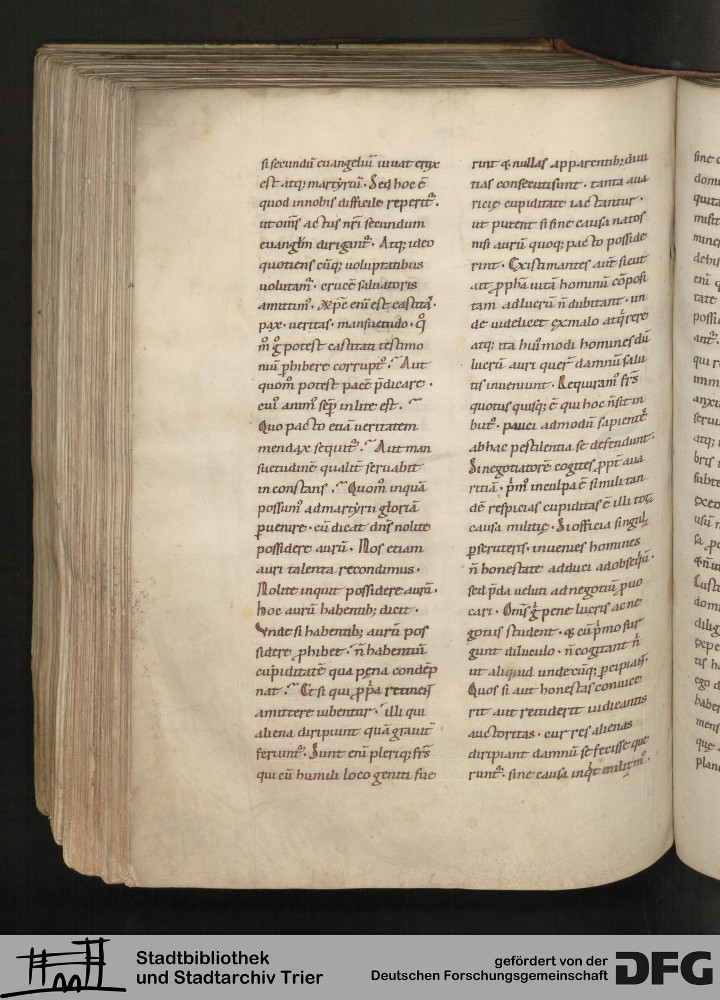 si secundū euangeliū uiuat crux
est atq; martyriū. Sed hoc ē
quod in nobis difficile reperit᷑.
ut om̅s actus nr̅i secundum
euangłm dirigant᷑. Atq; ideo
quotiens cūq; uoluptatibus
uolutam᷑. crucē saluatoris
amittim᷑. Xp̅c enī est castitas.
pax. ueritas. mansuetudo. q̊
m̊ g̊ potest castitati testimo
niū ꝓhibere corrupt᷑. Aut
quom̊ potest pacē p̄dicare.
cui᷑ anim᷑ sēp in lite est.
Quo pacto etiā ueritatem
mendax sequit᷑. Aut man
suetudinē qualit̄ seruabit
inconstans. Quom̊ inquā
possum᷑ ad martyrii gloriā
ꝑuenire. cū dicat dn̅s nolite
possidere aurū. Nos etiam
auri talenta recondimus.
Nolite inquit possidere aurū.
hoc aurū habentib; dicit.
Vnde si habentib; aurū pos
sidere ꝓhibet. n̄ habentiū
cupiditatē qua pęna condēp
nat. Et si qui ꝓp̄a retineń
amittere iubentur. illi qui
aliena diripiunt quā grauit̄
feriunt᷑. Sunt enī pleriq; fr̅s
qui cū humili loco geniti fue
rint & nullas apparentib; diui
tias consecuti sunt. tanta aua
ricię cupiditate iactantur.
ut putent si sine causa natos
nisi aurū quoq; pacto posside
rint. Existimantes aut̄ sicut
ait ꝓpħa uitā hominū cōposi
tam ad lucrū n̄ dubitant. un
de uidelicet ex malo atq̄rere
atq; ita hui᷑modi homines dū
lucrū auri quer̄t damnū salu
tis inueniunt. Requiram᷑ fr̅s
quotus quisq; ē qui hoc n̄ sit in
but᷑. pauci admodū sapient̄
ab hac pestilentia se defendunt.
Si negotiatorē cogites ꝓpt̄ aua
ritiā. p̄m᷑ in culpa ē simili tan
dē respicias cupiditas ē illi tota
causa militię. Si officia singul;
ꝑseruteris. inuenies homines
n̄ honestate adduci ad obseq̄ū.
sed p̄da ueluti ad negotiū ꝓuo
cari. Om̅s g̊ pene lucris ac ne
gotiis student. & cū p̄mo sur
gunt diluculo. n̄ cogitant n̄
ut aliquid undecūq; ꝑcipiant.
Quos si aut honestas conuice
rit aut retiderit iudicantis
auctoritas. cur res alienas
diripiant damnū se fecisse que
runt᷑. sine causa inq̄t militm᷑.
Stadtbibliothek
und Stadtarchiv Trier
gefördert von der
Deutschen Forschungsgemeinschaft
DFG